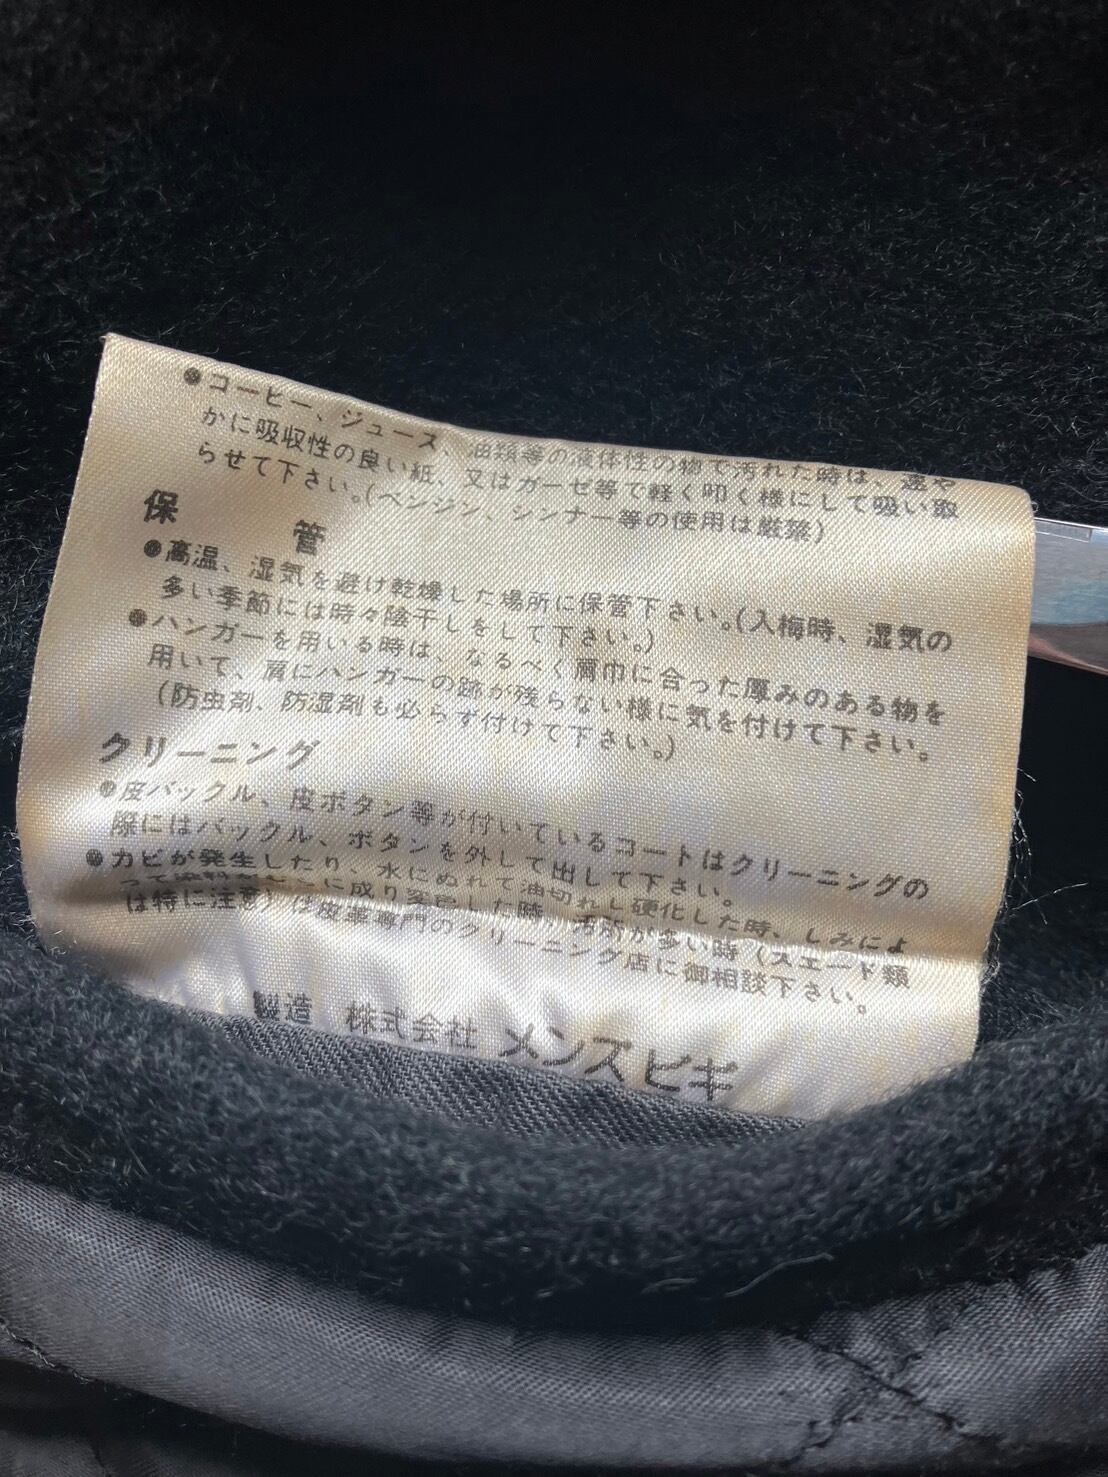 ●コーヒー、ジュース、油類等の液体性の物で汚れた時は、速や
かに吸収性の良い紙、又はガーゼ等で軽く叩く様にして吸い取
らせて下さい。(ベンジン、シンナー等の使用は厳禁)
保 管
●高温、湿気を避け乾燥した場所に保管下さい。(入梅時、湿気の
多い季節には時々陰干しをして下さい。)
●ハンガーを用いる時は、なるべく肩巾に合った厚みのある物を
用いて、肩にハンガーの跡が残らない様に気を付けて下さい。
(防虫剤、防湿剤も必らず付けて下さい。)
クリーニング
●皮バックル、皮ボタン等が付いているコートはクリーニングの
際にはバックル、ボタンを外して出して下さい。
●カビが発生したり、水にぬれて油切れし硬化した時、しみによ
って に成り変色した時、汚所が多い時(スエード類
は特に注意)は皮革専門のクリーニング店に御相談下さい。
製造 株式会社 メンズビギ